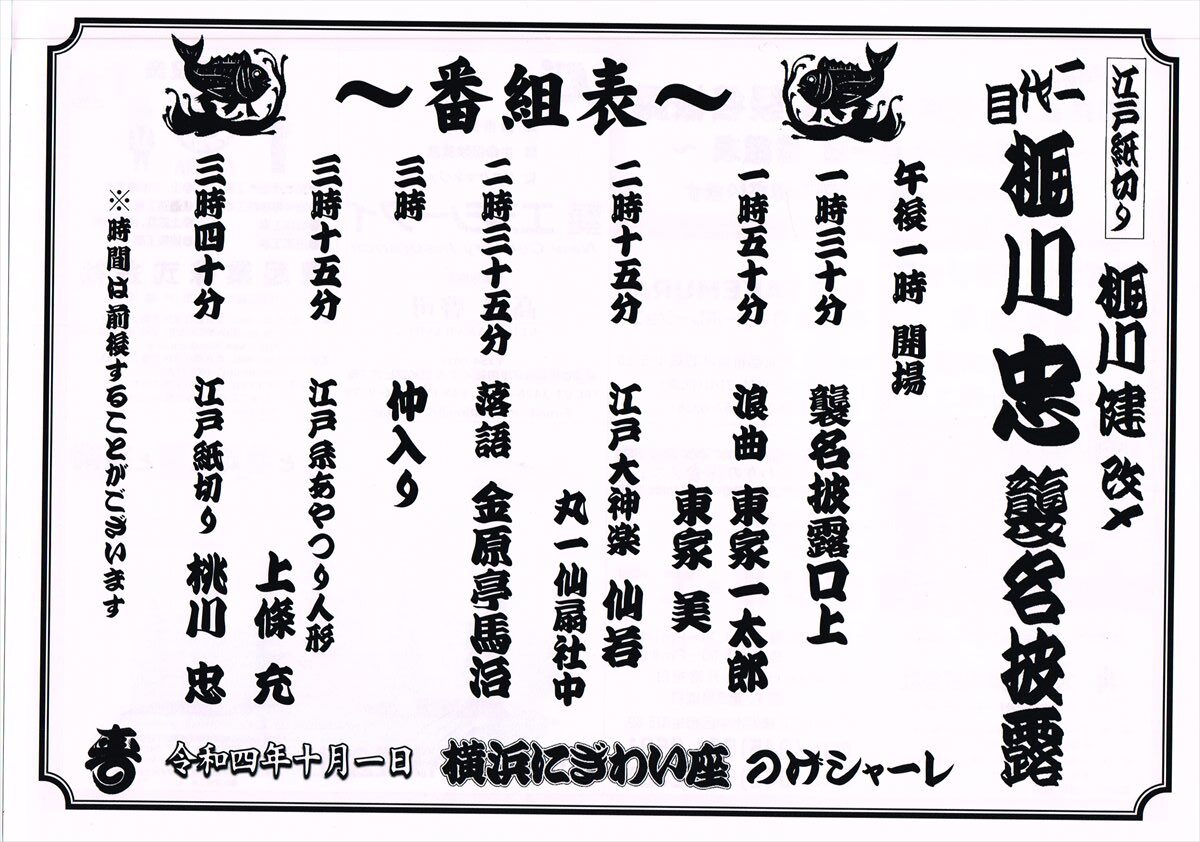 江戸紙切り
桃川健 改メ
二代目 桃川忠 襲名披露
～番組表～
午後一時 開場
一時三十分 襲名披露口上
一時五十分 浪曲 東家一太郎
東家 美
二時十五分 江戸大神楽 仙若
丸一仙扇社中
二時三十五分 落語 金原亭馬治
三時 仲入り
三時十五分 江戸糸あやつり人形
上條 充
三時四十分 江戸紙切り 桃川 忠
※時間は前後することがございます
寿
令和四年十月一日 横浜にぎわい座 のげシャーレ